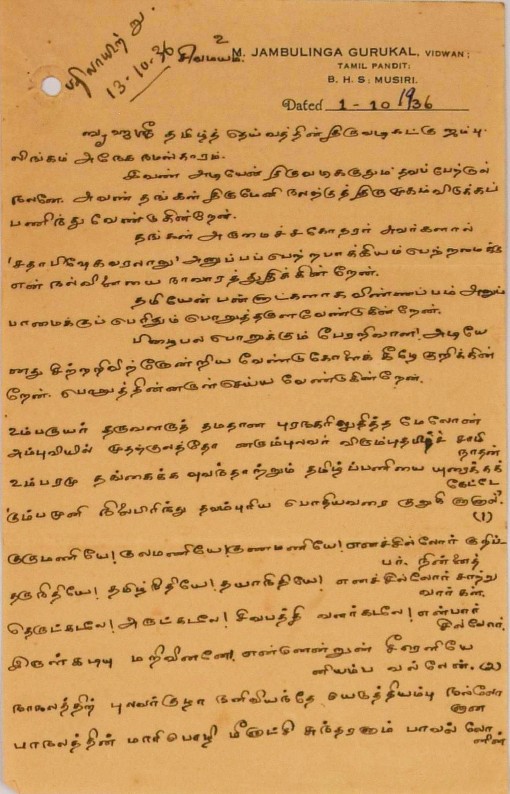 பதிலாயிற்று.
13-10-36
2
சிவமயம்.
M. JAMBULINGA GURUKAL, VIDWAN;
TAMIL PANDIT;
B. H. S; MUSIRI.
Dated 1-10 1936
தமிழ்த் தெய்வத்தின் திருவடிகட்கு ஜம்பு
லிங்கம் அநேக நமஸ்காரம்.
இவண் அடியேன் திருவடிக்குதும் தவப் பேற்றால்
நலனே. அவண் தங்கள் திருமேனி நலனறத் திருமுகம் விடுக்கப்
பணிந்து வேண்டுகின்றேன்.
தங்கள் அருமைச்சகோதரர் அவர்களால்
'சதாபிஷேகவரலாறு' அனுப்பப்பெற்ற பாக்கியம் பெற்றமைக்கு
என் நல்வினையை நாவாரத்துதிக்கின்றேன்.
தமியேன் பன்னாட்களாக விண்ணப்பம் அனுப்
பாமைக்குப் பெரிதும் பொறுத்தருளவேண்டுகின்றேன்.
பிழைபல பொறுக்கும் பேரறிவாள! அடியே
னது சிற்றறிவிற்றோன்றிய வேண்டுகோளைக் கீழே குறிக்கின்
றேன். வேண்டுகின்றேன்.
உம்பருயர் தருவளருந் தமதான புரநகரிலுதித்த மேலோன்
அம்புவியில் முதற்குலத்தோ னடும்புலவர் விரும்புதமிழ்ச் சாமி
நாதன்
உம்பரமு தங்கைக்க வுவந்தாற்றும் தமிழ்ப்பணியை யுணர்த்தக்
கேட்டே
கும்பமுனி நிலைபிரிந்து தவம்புரிய பொதியவரை குறுகி னானால்.
(1)
குருமணியே! குலமணியே! குணமணியே! எனச்சில்லோர் குறிப்
பர். நின்னைத்
தருநிதியே! தமிழ்நிதியே! தயாநிதியே! எனச்சில்லோர் சாற்று
வார்கள்.
தெருட்கடலே! அருட்கடலே! சிவபத்தி வளர்கடலே! என்பார்
சில்லோர்.
இருள்கடியு மறிவினனே! என்னென்றுன் சீரெளியே
னியம்ப வல்லேன். (2)
நாவலத்திற் புலவர்குழா நனிவியந்தே யெடுத்தியம்பு நல்லோ
னான
பாநலத்தின் மாரிபொழி மீனாட்சி சுந்தரனாம் பாவல் லோ
னின்